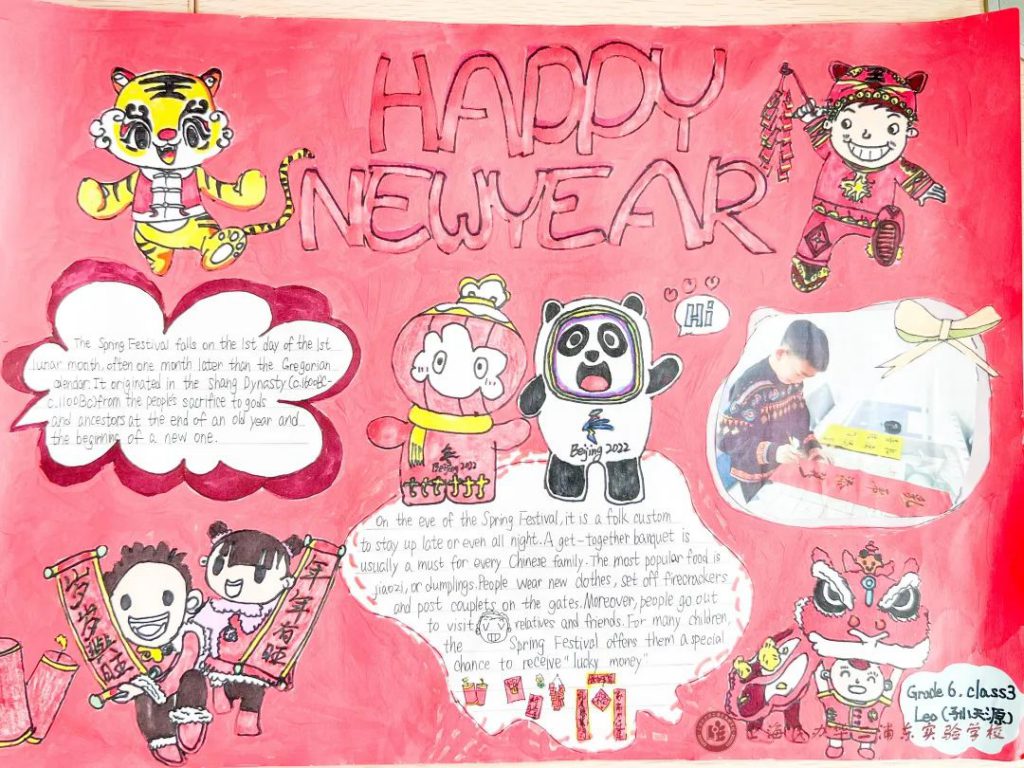 HAPPY
NEWYEAR
Hi
The Spring Festival falls on the 1st day of the 1st
lunar month, often one month later than the Gregorian
calendar. It originated in the Shang Dynasty (c.1600BC-
c.1100BC) from the people's sacrifice to gods
and ancestors at the end of an old year and
the beginning of a new one.
Beijing 2022
Beijing 2022
On the eve of the Spring Festival, it is a folk custom
to stay up late or even all night. A get-together banquet is
usually a must for every Chinese family. The most popular food is
jiaozi, or dumplings. People wear new clothes, set off firecrackers
and post couplets on the gates. Moreover, people go out
to visit relatives and friends. For many children,
the Spring Festival offers them a special
chance to receive "lucky money"
年年有
Grade 6. class3
Leo (孙天源)
上海民办华二浦东实验学校